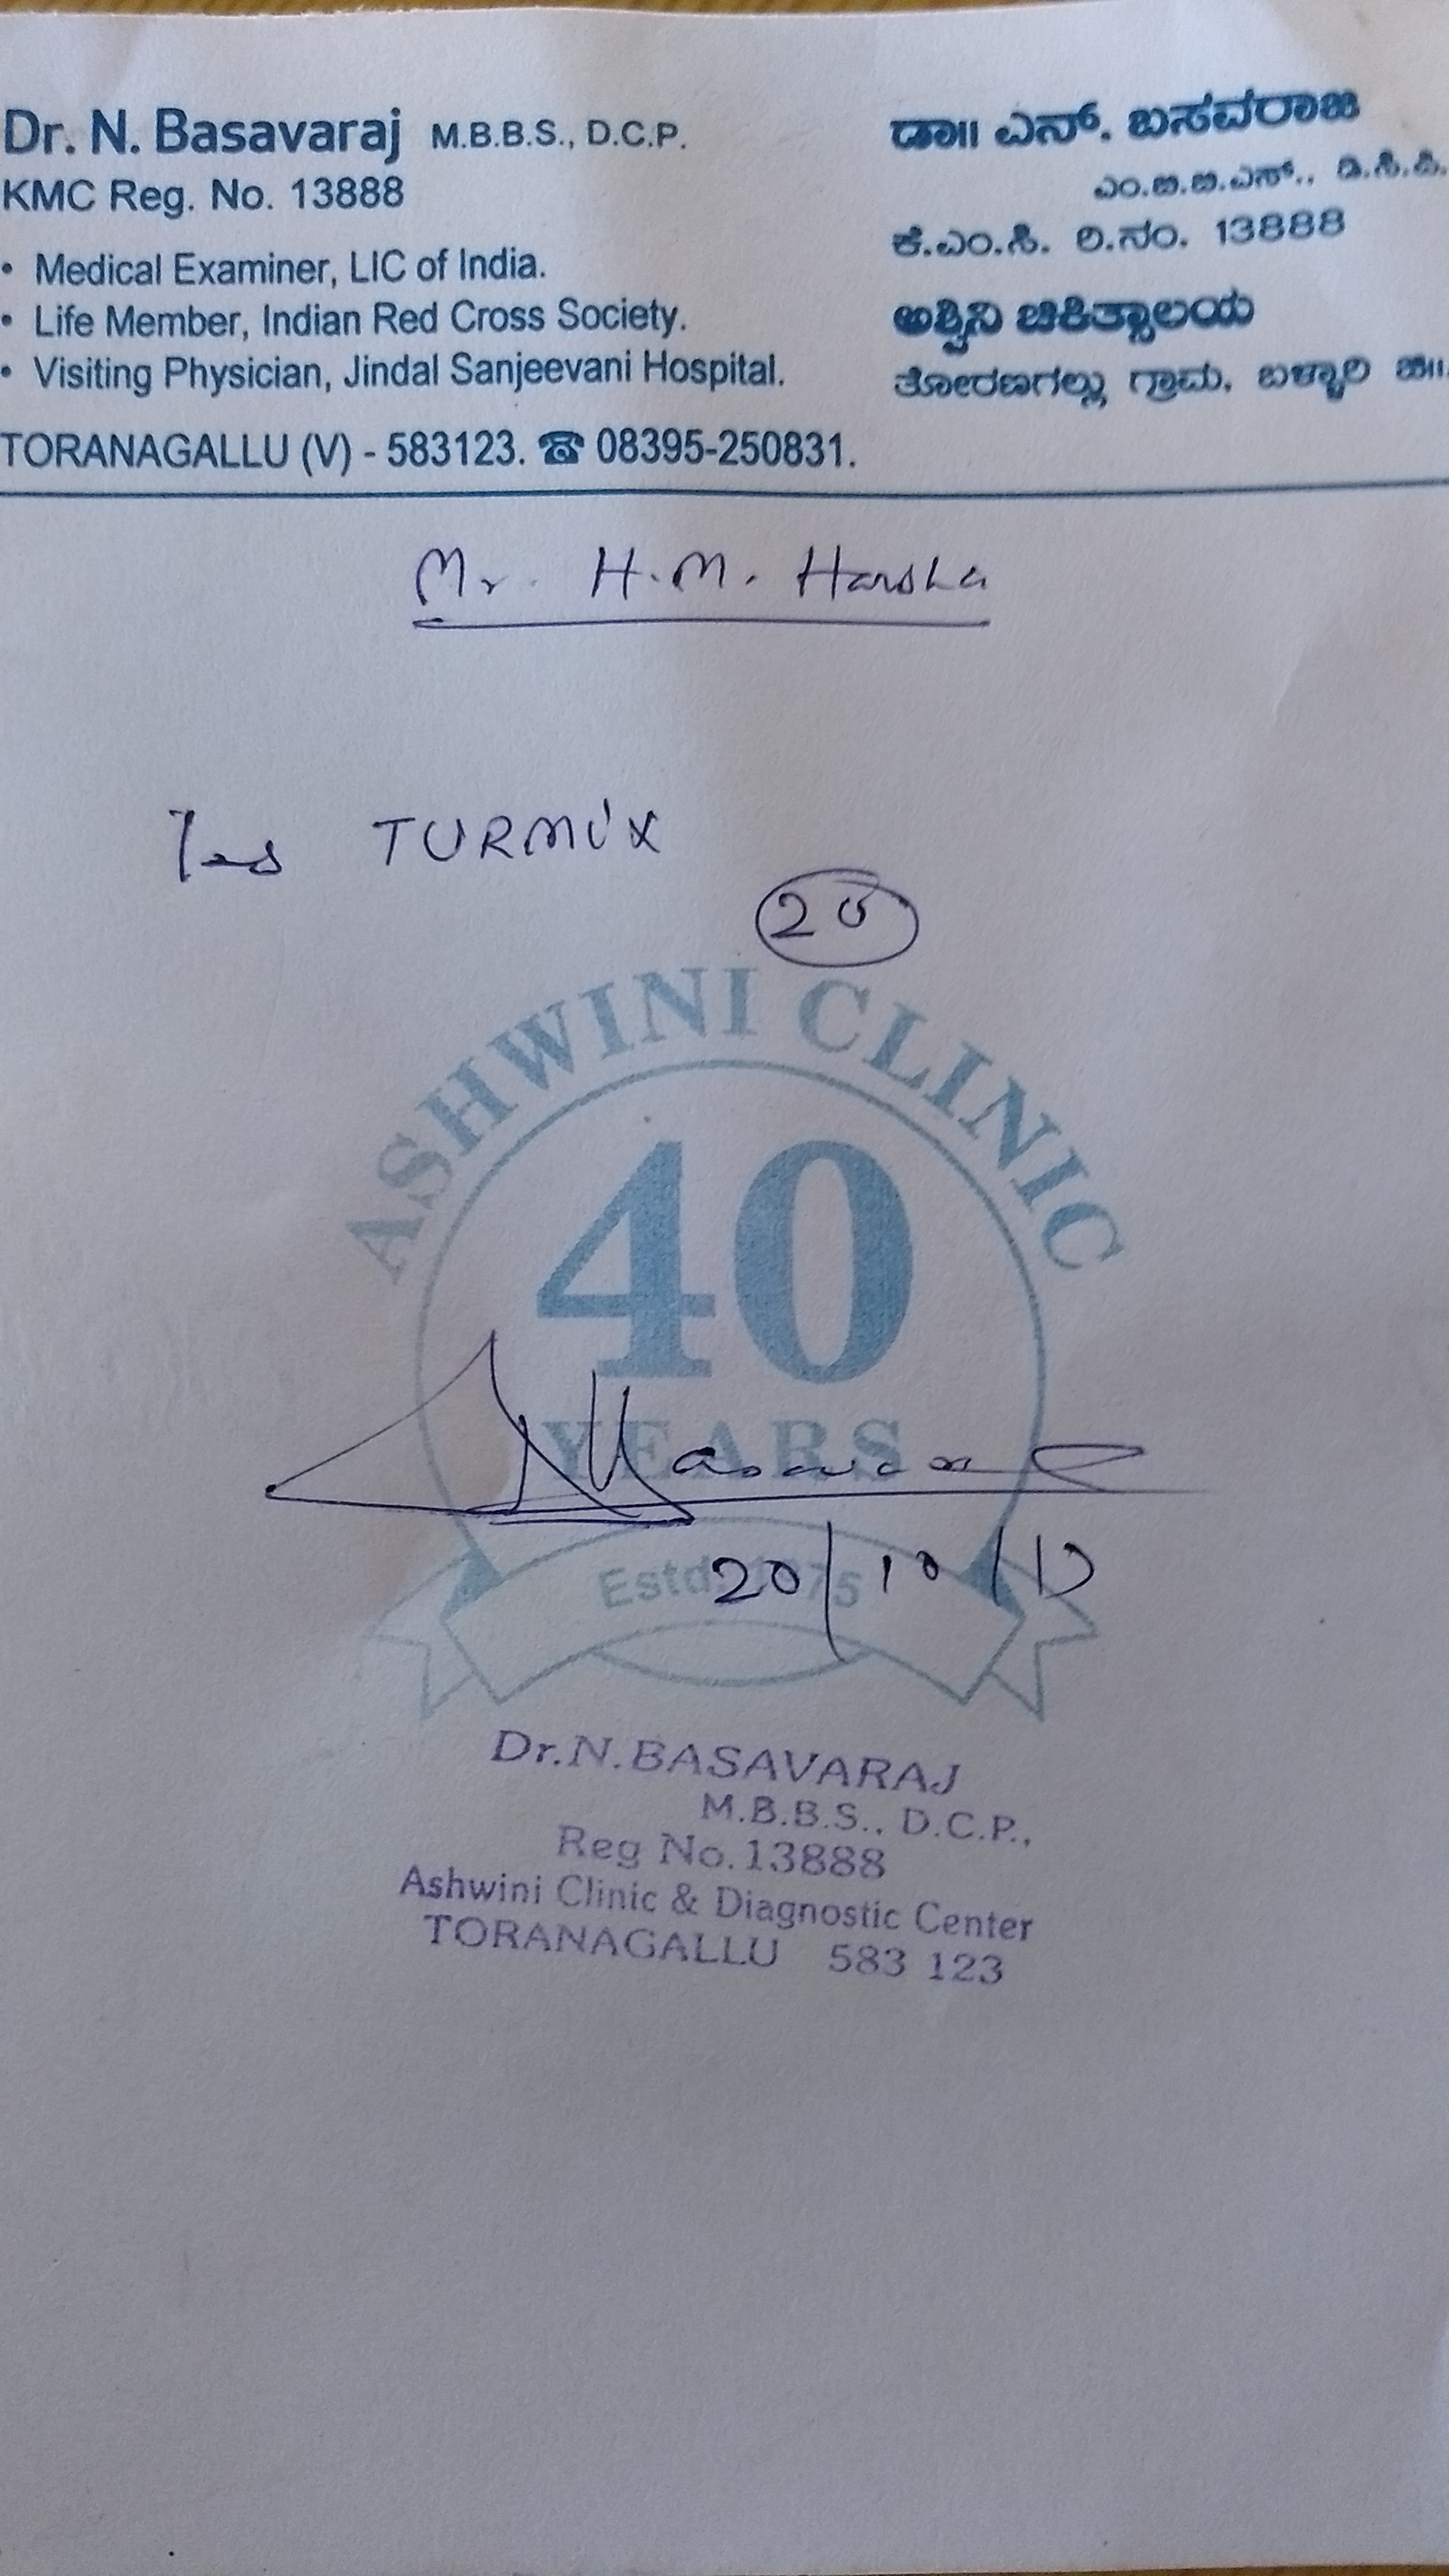 Dr. N. Basavaraj M.B.B.S., D.C.P.
KMC Reg. No. 13888
• Medical Examiner, LIC of India.
• Life Member, Indian Red Cross Society.
• Visiting Physician, Jindal Sanjeevani Hospital.
TORANAGALLU (V) - 583123. ☎ 08395-250831.
ಡಾ॥ ಎನ್. ಬಸವರಾಜ
ಎಂ.ಬಿ.ಬಿ.ಎಸ್., ಡಿ.ಸಿ.ಪಿ.
ಕೆ.ಎಂ.ಸಿ. ರಿ.ನಂ. 13888
ಅಶ್ವಿನಿ ಚಿಕಿತ್ಸಾಲಯ
ತೋರಣಗಲ್ಲು ಗ್ರಾಮ, ಬಳ್ಳಾರಿ ಜಿ॥.
Mr. H.M. Harsha
TURMIX
20
ASHWINI CLINIC
40
YEARS
Estd
20/10/
Dr.N.BASAVARAJ
M.B.B.S., D.C.P.,
Reg No.13888
Ashwini Clinic & Diagnostic Center
TORANAGALLU 583 123